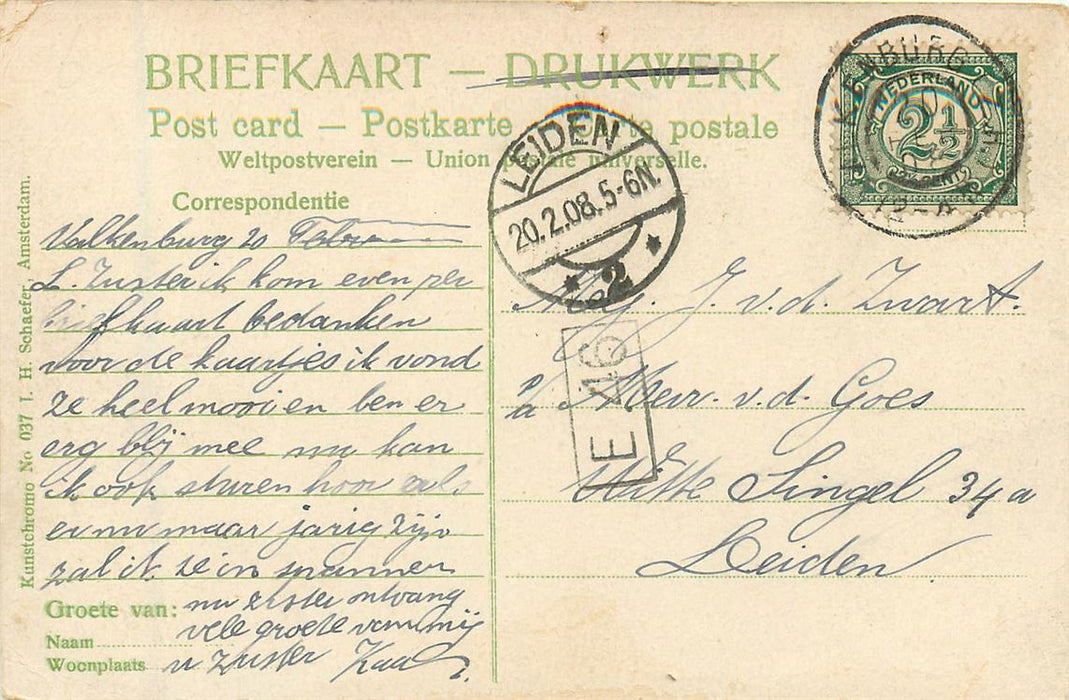 BRIEFKAART — DRUKWERK
Post card — Postkarte — Carte postale
Weltpostverein — Union postale universelle.
Correspondentie
Valkenburg 20
L. Zuster ik kom even per
briefkaart bedanken
voor de kaartjes ik vond
ze heel mooi en ben er
erg blij mee nu kan
ik ook sturen hoor als
er nu maar jarig zijn
zal ik ze in
Groete van: nu zuster ontvang
vele groete van mij
Naam
Woonplaats u zuster
Kunstchromo No 037 J. H. Schaefer, Amsterdam.
LEIDEN
20.2.08.5-6N.
2
NEDERLAND
2½
CENT
E 46
J. v. d. Zwart.
p/a Mevr. v. d. Goes
Witte Singel 34a
Leiden